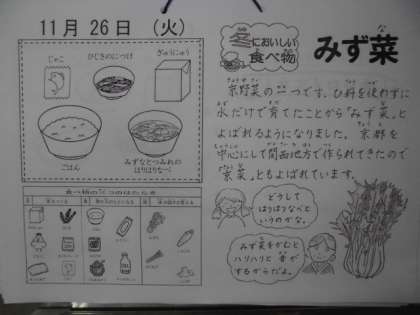 11月 26日 （火）
じゃこ
ひじきのにつけ
ぎゅうにゅう
ごはん
みずなとつみれの
はりはりなべ
食べ物の3つのはたらき
冬においしい
食べ物
みず菜
京野菜の一つです。ひ料を使わずに
水だけで育てたことから「みず菜」と
よばれるようになりました。京都を
中心にして関西地方で作られてきたので
「京菜」ともよばれています。
どうして
はりはりなべと
いうのかな。
みず菜をかむと
ハリハリと音が
するからだよ。